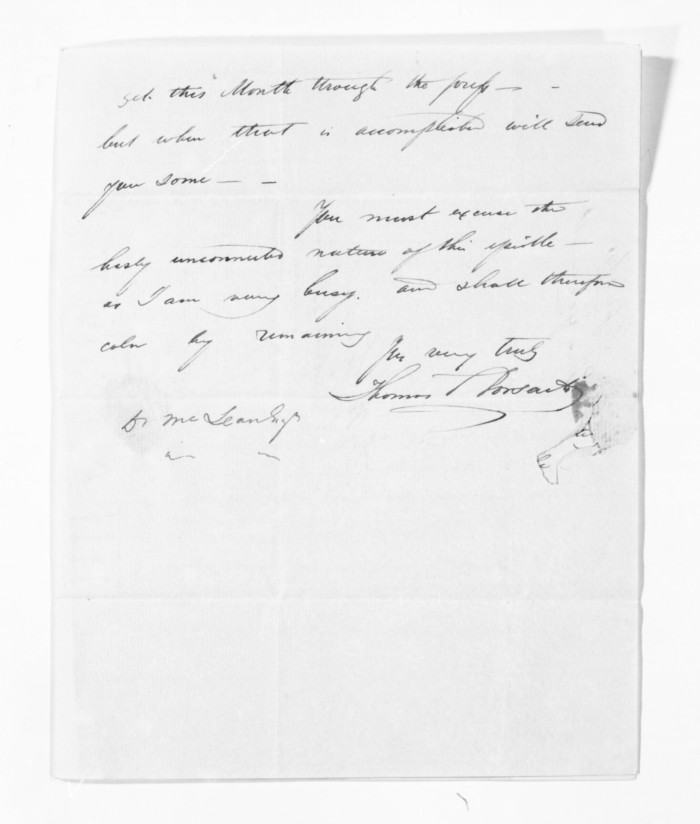 get this Month through the press – –
but when that is accomplished will send
you some – –
You must excuse the
hasty unconnected nature of this epistle –
as I am very busy. and shall therefore
by remaining
very truly
Thomas T
D. McLean Esqr